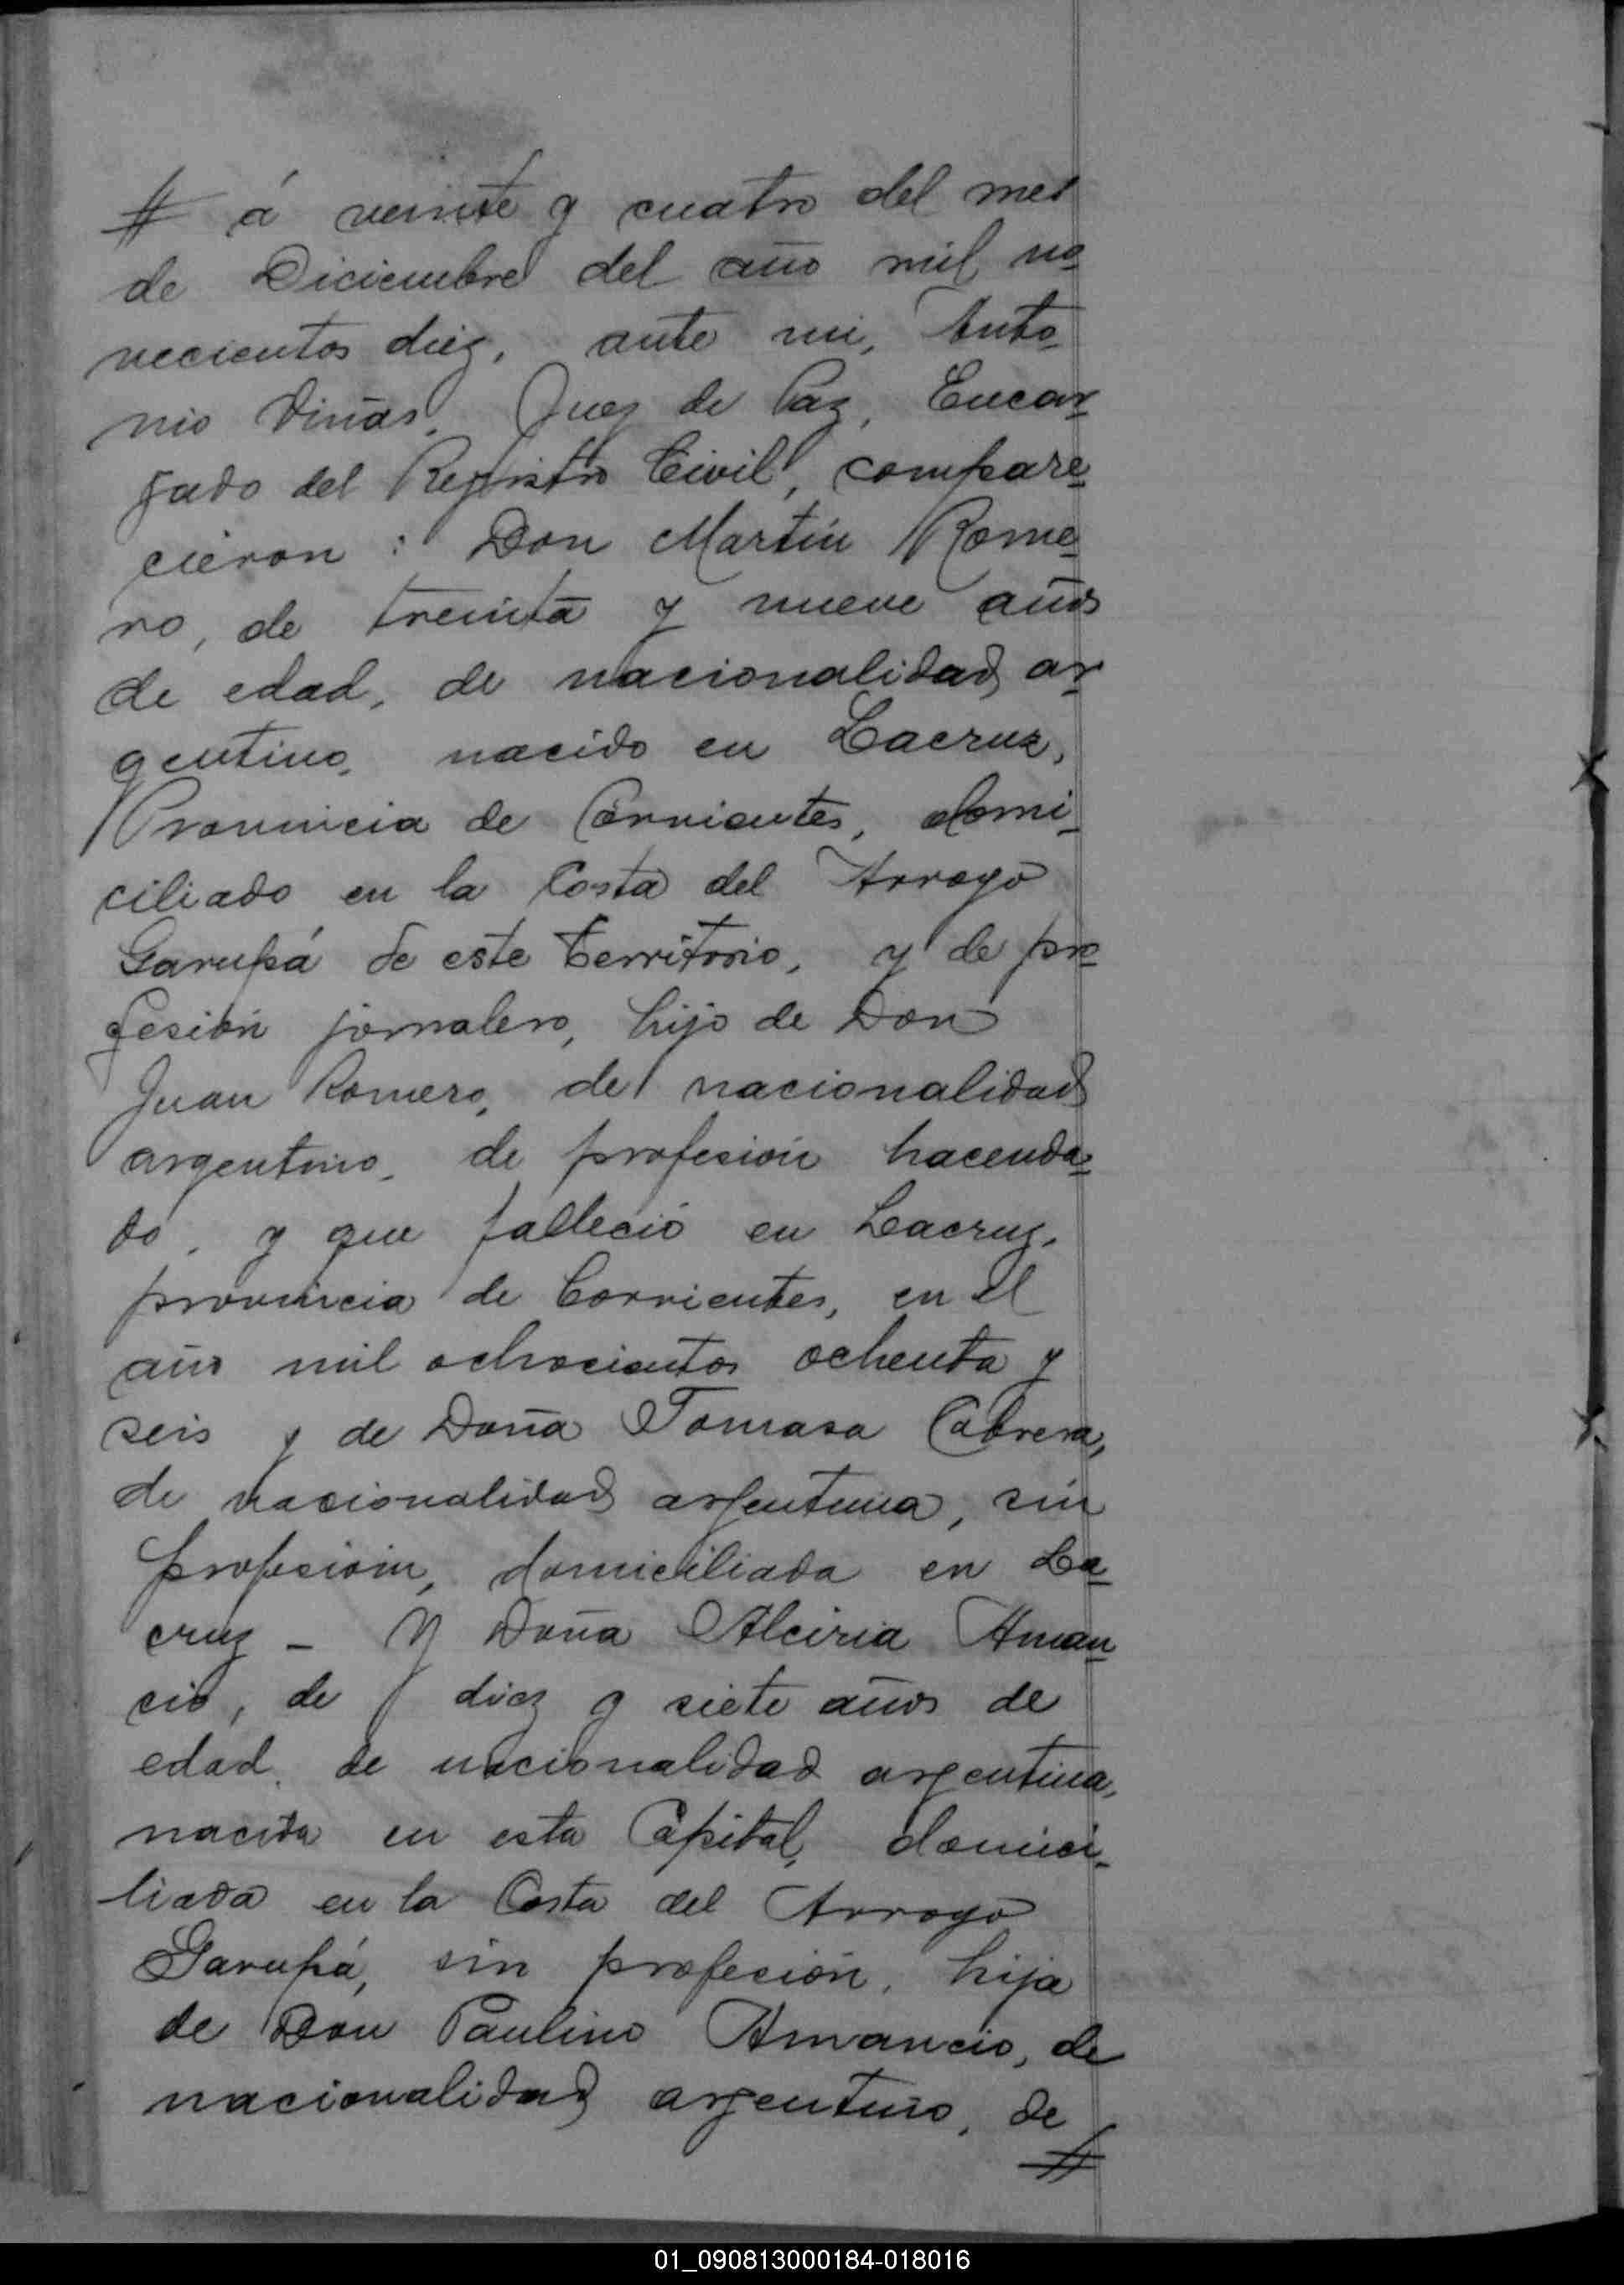 # á veinte y cuatro del mes
de Diciembre del año mil no-
vecientos diez, ante mi, Anto-
nio Viñas, Juez de Paz, Encar-
gado del Registro Civil, compare-
cieron: Don Martín Rome-
ro, de treinta y nueve años
de edad, de nacionalidad ar-
gentino, nacido en Lacruz,
Provincia de Corrientes, domi-
ciliado en la Costa del Arroyo
Garupá de este Territorio, y de pro-
fesión jornalero, hijo de Don
Juan Romero, de nacionalidad
argentino, de profesión hacenda-
do, y que falleció en Lacruz,
provincia de Corrientes, en el
año mil ochocientos ochenta y
seis y de Doña Tomasa Cabrera,
de nacionalidad argentina, sin
profesión, domiciliada en La-
cruz - Y Doña Alciria Aman-
cio, de diez y siete años de
edad, de nacionalidad argentina,
nacida en esta Capital, domici-
liada en la Costa del Arroyo
Garupá, sin profesión, hija
de Don Paulino Amancio, de
nacionalidad argentino, de
#
01_090813000184-018016